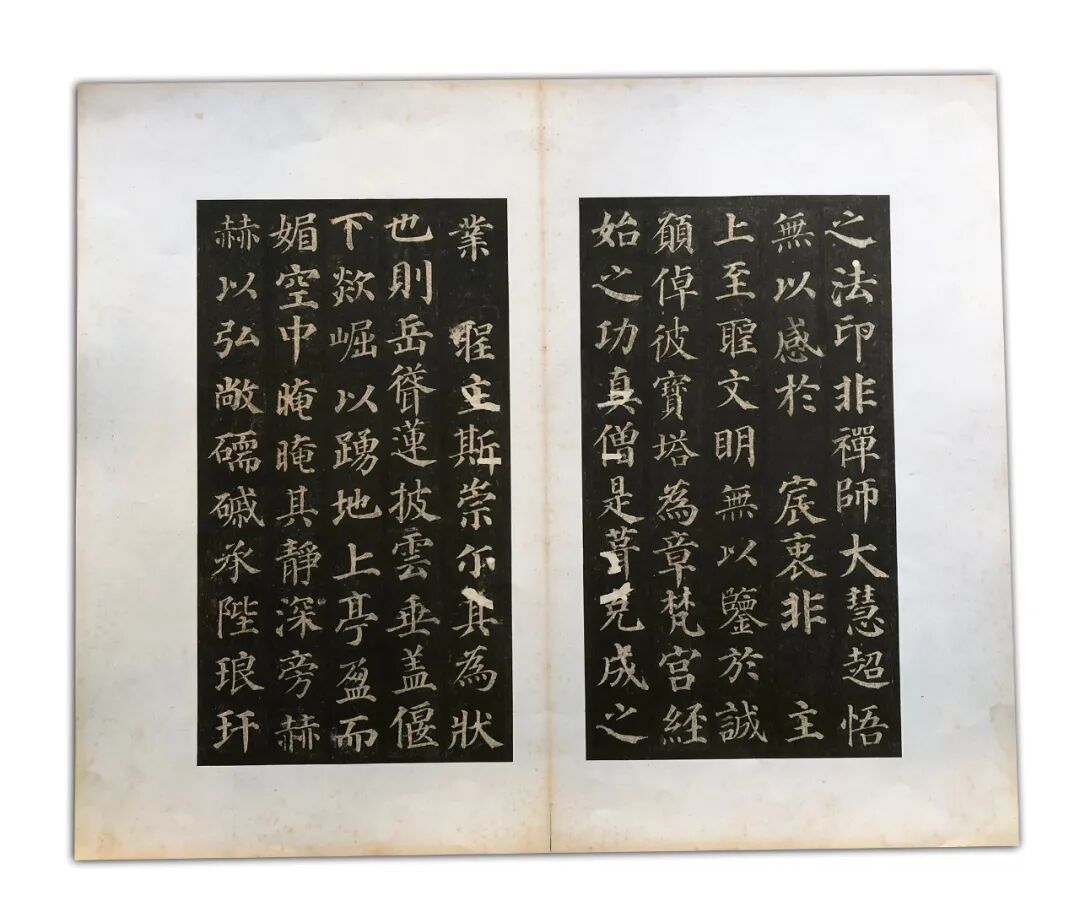 之法印非禪師大慧超悟
無以感於　宸衷非　主
上至聖文明無以鑒於誠
願倬彼寶塔為章梵宮經
始之功真僧是葺克成之
業　聖主斯崇尒其為狀
也則岳聳蓮披雲垂盖偃
下欻崛以踴地上亭盈而
媚空中晻晻其靜深旁赫
赫以弘敞礝磩承陛琅玕